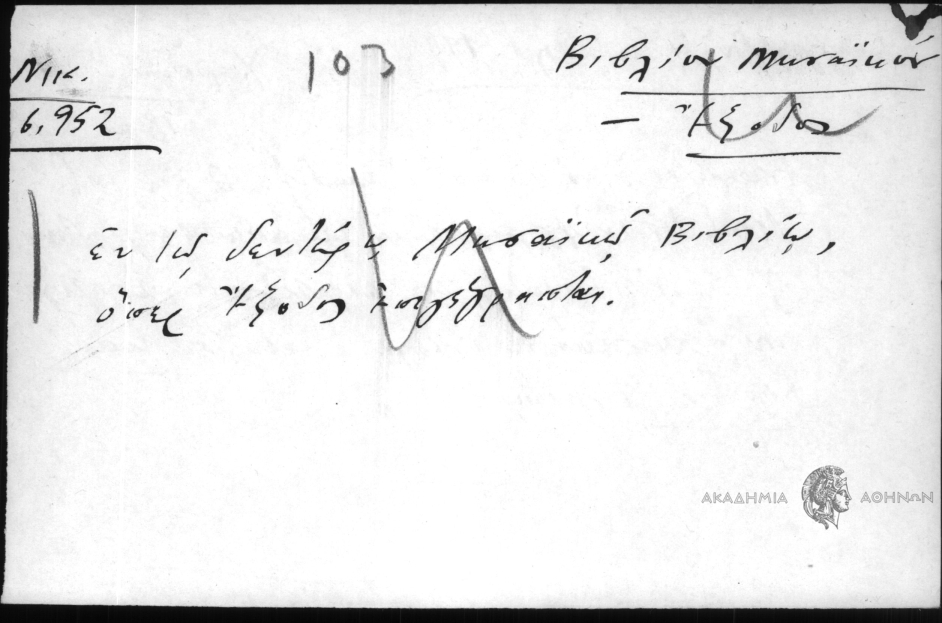 Νικ.
6.952
103
Βιβλίον Μωσαϊκόν
— Ἔξοδος
ἐν τῷ δευτέρῳ Μωσαϊκῷ Βιβλίῳ,
ὅπερ Ἔξοδος ἐπιγέγραπται.
ΑΚΑΔΗΜΙΑ ΑΘΗΝΩΝ